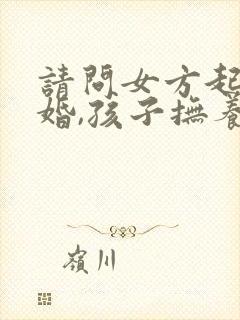 請問女方起
婚,孩子撫養
嶺川